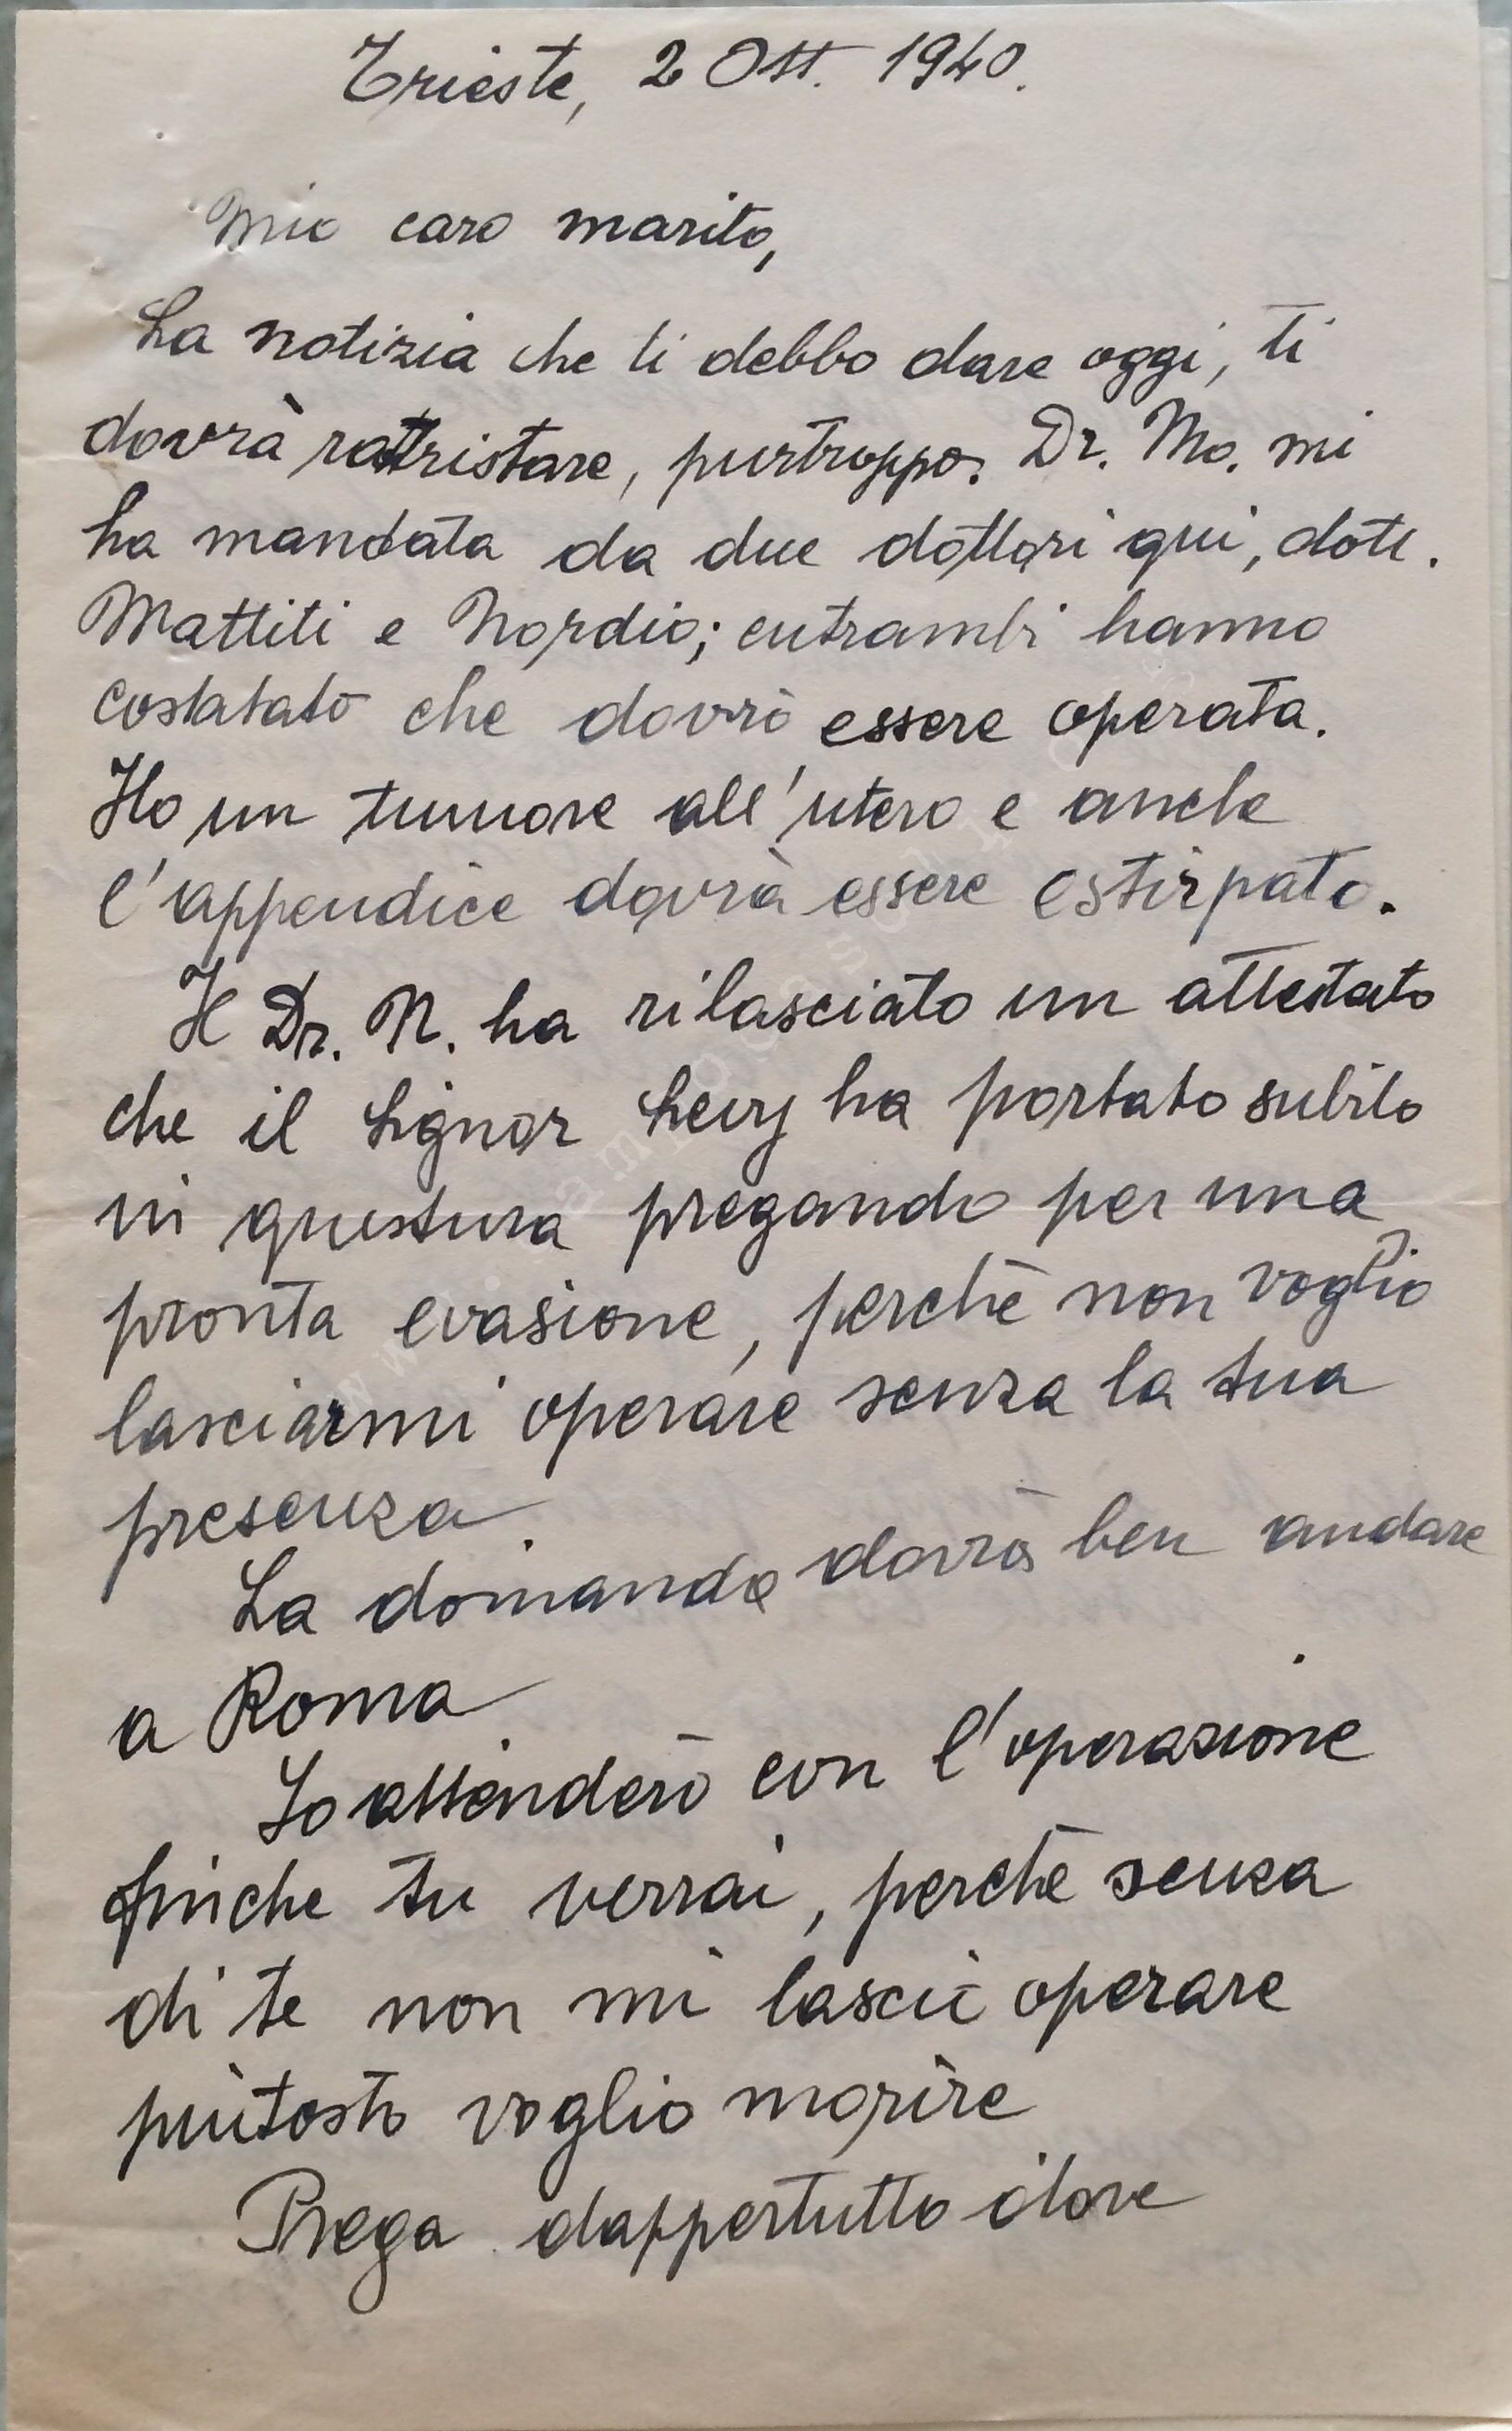 Trieste, 2 Ott. 1940.
Mio caro marito,
La notizia che ti debbo dare oggi, ti
dovrà rattristare, purtroppo. Dr. Mo. mi
ha mandata da due dottori qui, dott.
Mattiti e Nordio; entrambi hanno
costatato che dovrò essere operata.
Ho un tumore all'utero e anche
l'appendice dovrà essere estirpato.
Il Dr. N. ha rilasciato un attestato
che il Signor Levy ha portato subito
in questura pregando per una
pronta evasione, perchè non voglio
lasciarmi operare senza la tua
presenza.
La domanda dovrà ben andare
a Roma
Io attenderò con l'operazione
finche tu verrai, perchè senza
di te non mi lascio operare
piùtosto voglio morire
Prega dappertutto dove